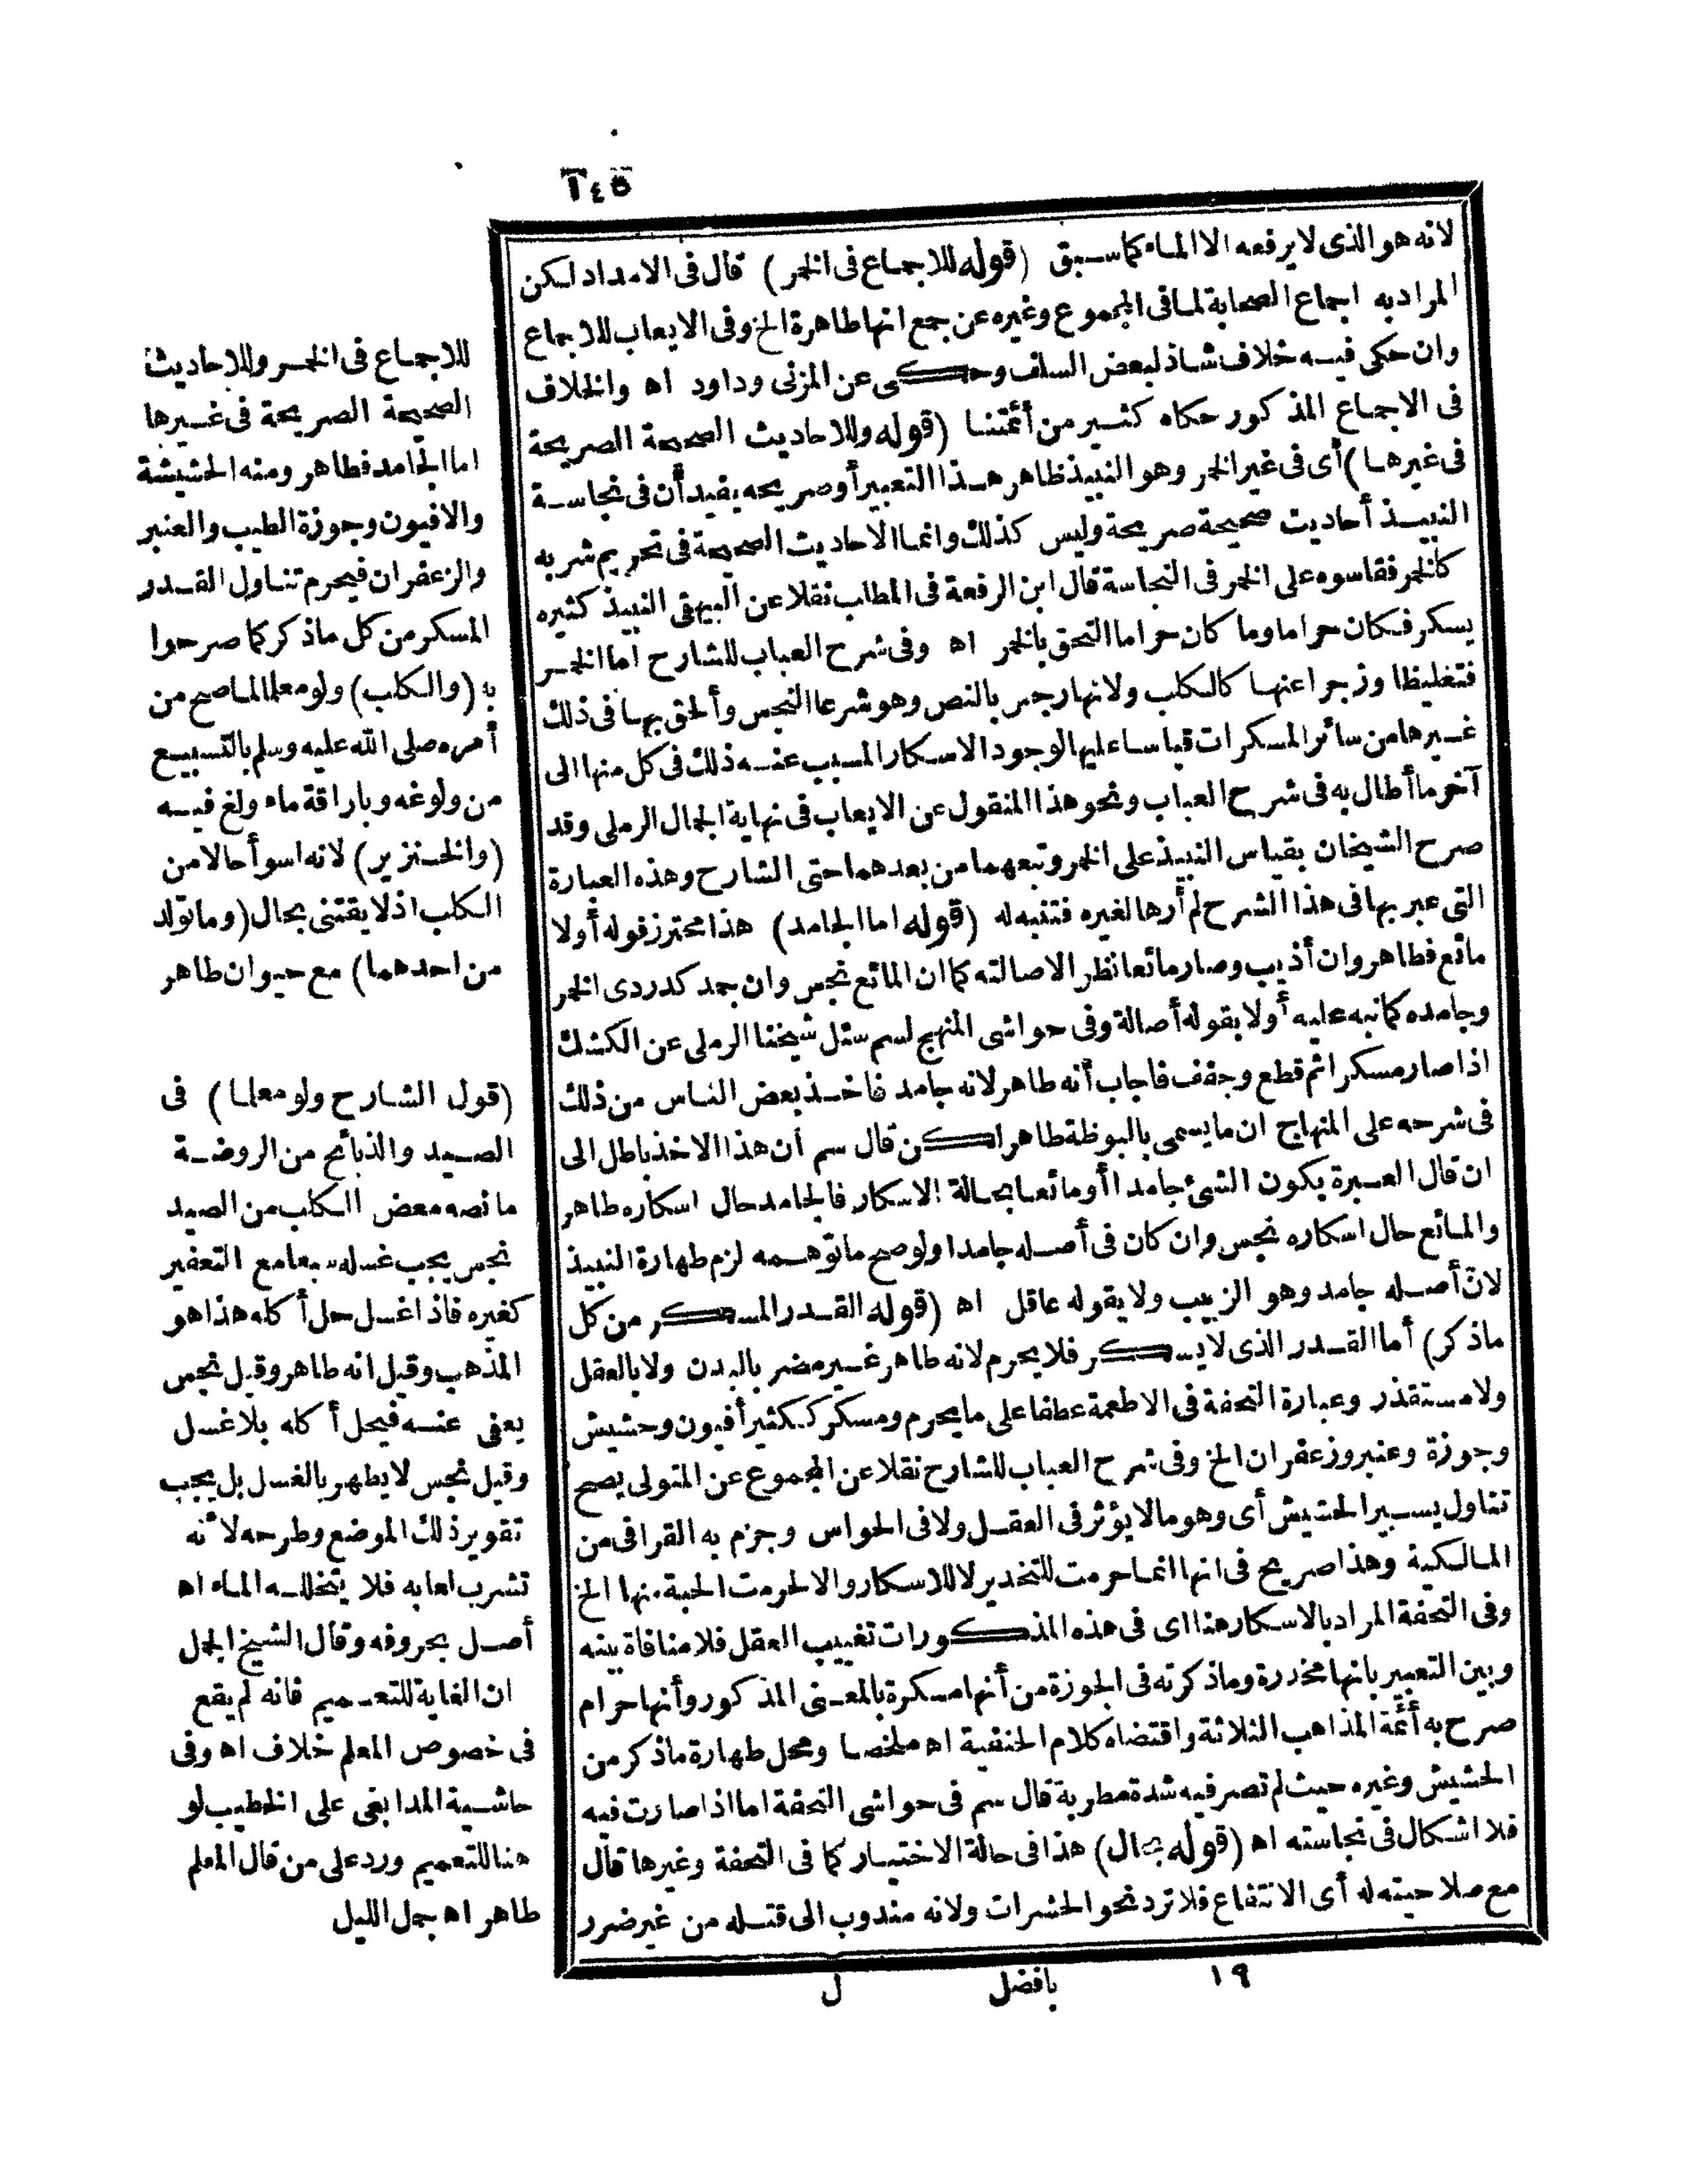 ١٤٥
لانه هو الذى لا يرفعه الا الماء كما سبق (قوله للاجماع فى الخمر) قال فى الامداد لكن
المراد به اجماع الصحابة لما فى المجموع وغيره عن جمع انها طاهرة الخ وفى الايعاب للاجماع
وان حكى فيه خلاف شاذ لبعض السلف وحكى عن المزنى وداود اه والخلاف
فى الاجماع المذكور حكاه كثير من أئمتنا (قوله وللاحاديث الصحيحة الصريحة
فى غيرها) أى فى غير الخمر وهو النبيذ ظاهر هذا التعبير أو صريحه يفيد أن فى نجاسة
النبيذ أحاديث صحيحة صريحة وليس كذلك وانما الاحاديث الصحيحة فى تحريم شربه
كالخمر فقاسوه على الخمر فى النجاسة قال ابن الرفعة فى المطلب نقلا عن البيهقى النبيذ كثيره
يسكر فكان حراما وما كان حراما التحق بالخمر اه وفى شرح العباب للشارح اما الخمر
فتغليظا وزجرا عنها كالكلب ولانها رجس بالنص وهو شرعا النجس وألحق بها فى ذلك
غيرها من سائر المسكرات قياسا عليها لوجود الاسكار المسبب عنه ذلك فى كل منها الى
آخر ما أطال به فى شرح العباب ونحو هذا المنقول عن الايعاب فى نهاية الجمال الرملى وقد
صرح الشيخان بقياس النبيذ على الخمر وتبعهما من بعدهما حتى الشارح وهذه العبارة
التى عبر بها فى هذا الشرح لم أرها لغيره فتنبه له (قوله اما الجامد) هذا محترز قوله أولا
مائع فطاهر وان أذيب وصار مائعا نظر الاصالته كما ان المائع نجس وان جمد كدردى الخمر
وجامده كما نبه عليه أولا بقوله أصالة وفى حواشى المنهج لسم سئل شيخنا الرملى عن الكشك
اذا صار مسكرا ثم قطع وجفف فاجاب أنه طاهر لانه جامد فاخذ بعض الناس من ذلك
فى شرحه على المنهاج ان ما يسمى بالبوظة طاهر لكن قال سم ان هذا الاخذ باطل الى
ان قال العبرة بكون الشئ جامدا أو مائعا بحالة الاسكار فالجامد حال اسكاره طاهر
والمائع حال اسكاره نجس وان كان فى أصله جامدا ولو صح ما توهمه لزم طهارة النبيذ
لان أصله جامد وهو الزبيب ولا يقوله عاقل اه (قوله القدر المسكر من كل
ما ذكر) أما القدر الذى لا يسكر فلا يحرم لانه طاهر غير مضر بالبدن ولا بالعقل
ولا مستقذر وعبارة التحفة فى الاطعمة عطفا على ما يحرم ومسكر ككثير أفيون وحشيش
وجوزة وعنبر وزعفران الخ وفى شرح العباب للشارح نقلا عن المجموع عن المتولى يصح
تناول يسير الحشيش أى وهو ما لا يؤثر فى العقل ولا فى الحواس وجزم به القرافى من
المالكية وهذا صريح فى انها انما حرمت للتخدير لا للاسكار والا لحرمت الحبة منها الخ
وفى التحفة المراد بالاسكار هنا اى فى هذه المذكورات تغييب العقل فلا منافاة بينه
وبين التعبير بانها مخدرة وما ذكرته فى الجوزة من أنها مسكرة بالمعنى المذكور وأنها حرام
صرح به أئمة المذاهب الثلاثة واقتضاه كلام الحنفية اه ملخصا ومحل طهارة ما ذكر من
الحشيش وغيره حيث لم تصر فيه شدة مطربة قال سم فى حواشى التحفة اما اذا صارت فيه
فلا اشكال فى نجاسته اه (قوله بحال) هذا فى حالة الاختيار كما فى التحفة وغيرها قال
مع صلاحيته له أى الانتفاع فلا ترد نحو الحشرات ولانه مندوب الى قتله من غير ضرر
للاجماع فى الخمر وللاحاديث
الصحيحة الصريحة فى غيرها
اما الجامد فطاهر ومنه الحشيشة
والافيون وجوزة الطيب والعنبر
والزعفران فيحرم تناول القدر
المسكر من كل ما ذكر كما صرحوا
به (والكلب) ولو معلما لما صح من
أمره صلى الله عليه وسلم بالتسبيع
من ولوغه وباراقة ماء ولغ فيه
(والخنزير) لانه اسوأ حالا من
الكلب اذ لا يقتنى بحال (وما تولد
من احدهما) مع حيوان طاهر
(قول الشارح ولو معلما) فى
الصيد والذبائح من الروضة
ما نصه معض الكلب من الصيد
نجس يجب غسله سبعا مع التعفير
كغيره فاذا غسل حل أكله هذا هو
المذهب وقيل انه طاهر وقيل نجس
يعفى عنه فيحل أكله بلا غسل
وقيل نجس لا يطهر بالغسل بل يجب
تقوير ذلك الموضع وطرحه لأنه
تشرب لعابه فلا يتخلله الماء اه
أصل بحروفه وقال الشيخ الجمل
ان الغاية للتعميم فانه لم يقع
فى خصوص المعلم خلاف اه وفى
حاشية المدابغى على الخطيب لو
هنا للتعميم ورد على من قال المعلم
طاهر اه جمل الليل
١٩ بافضل ل